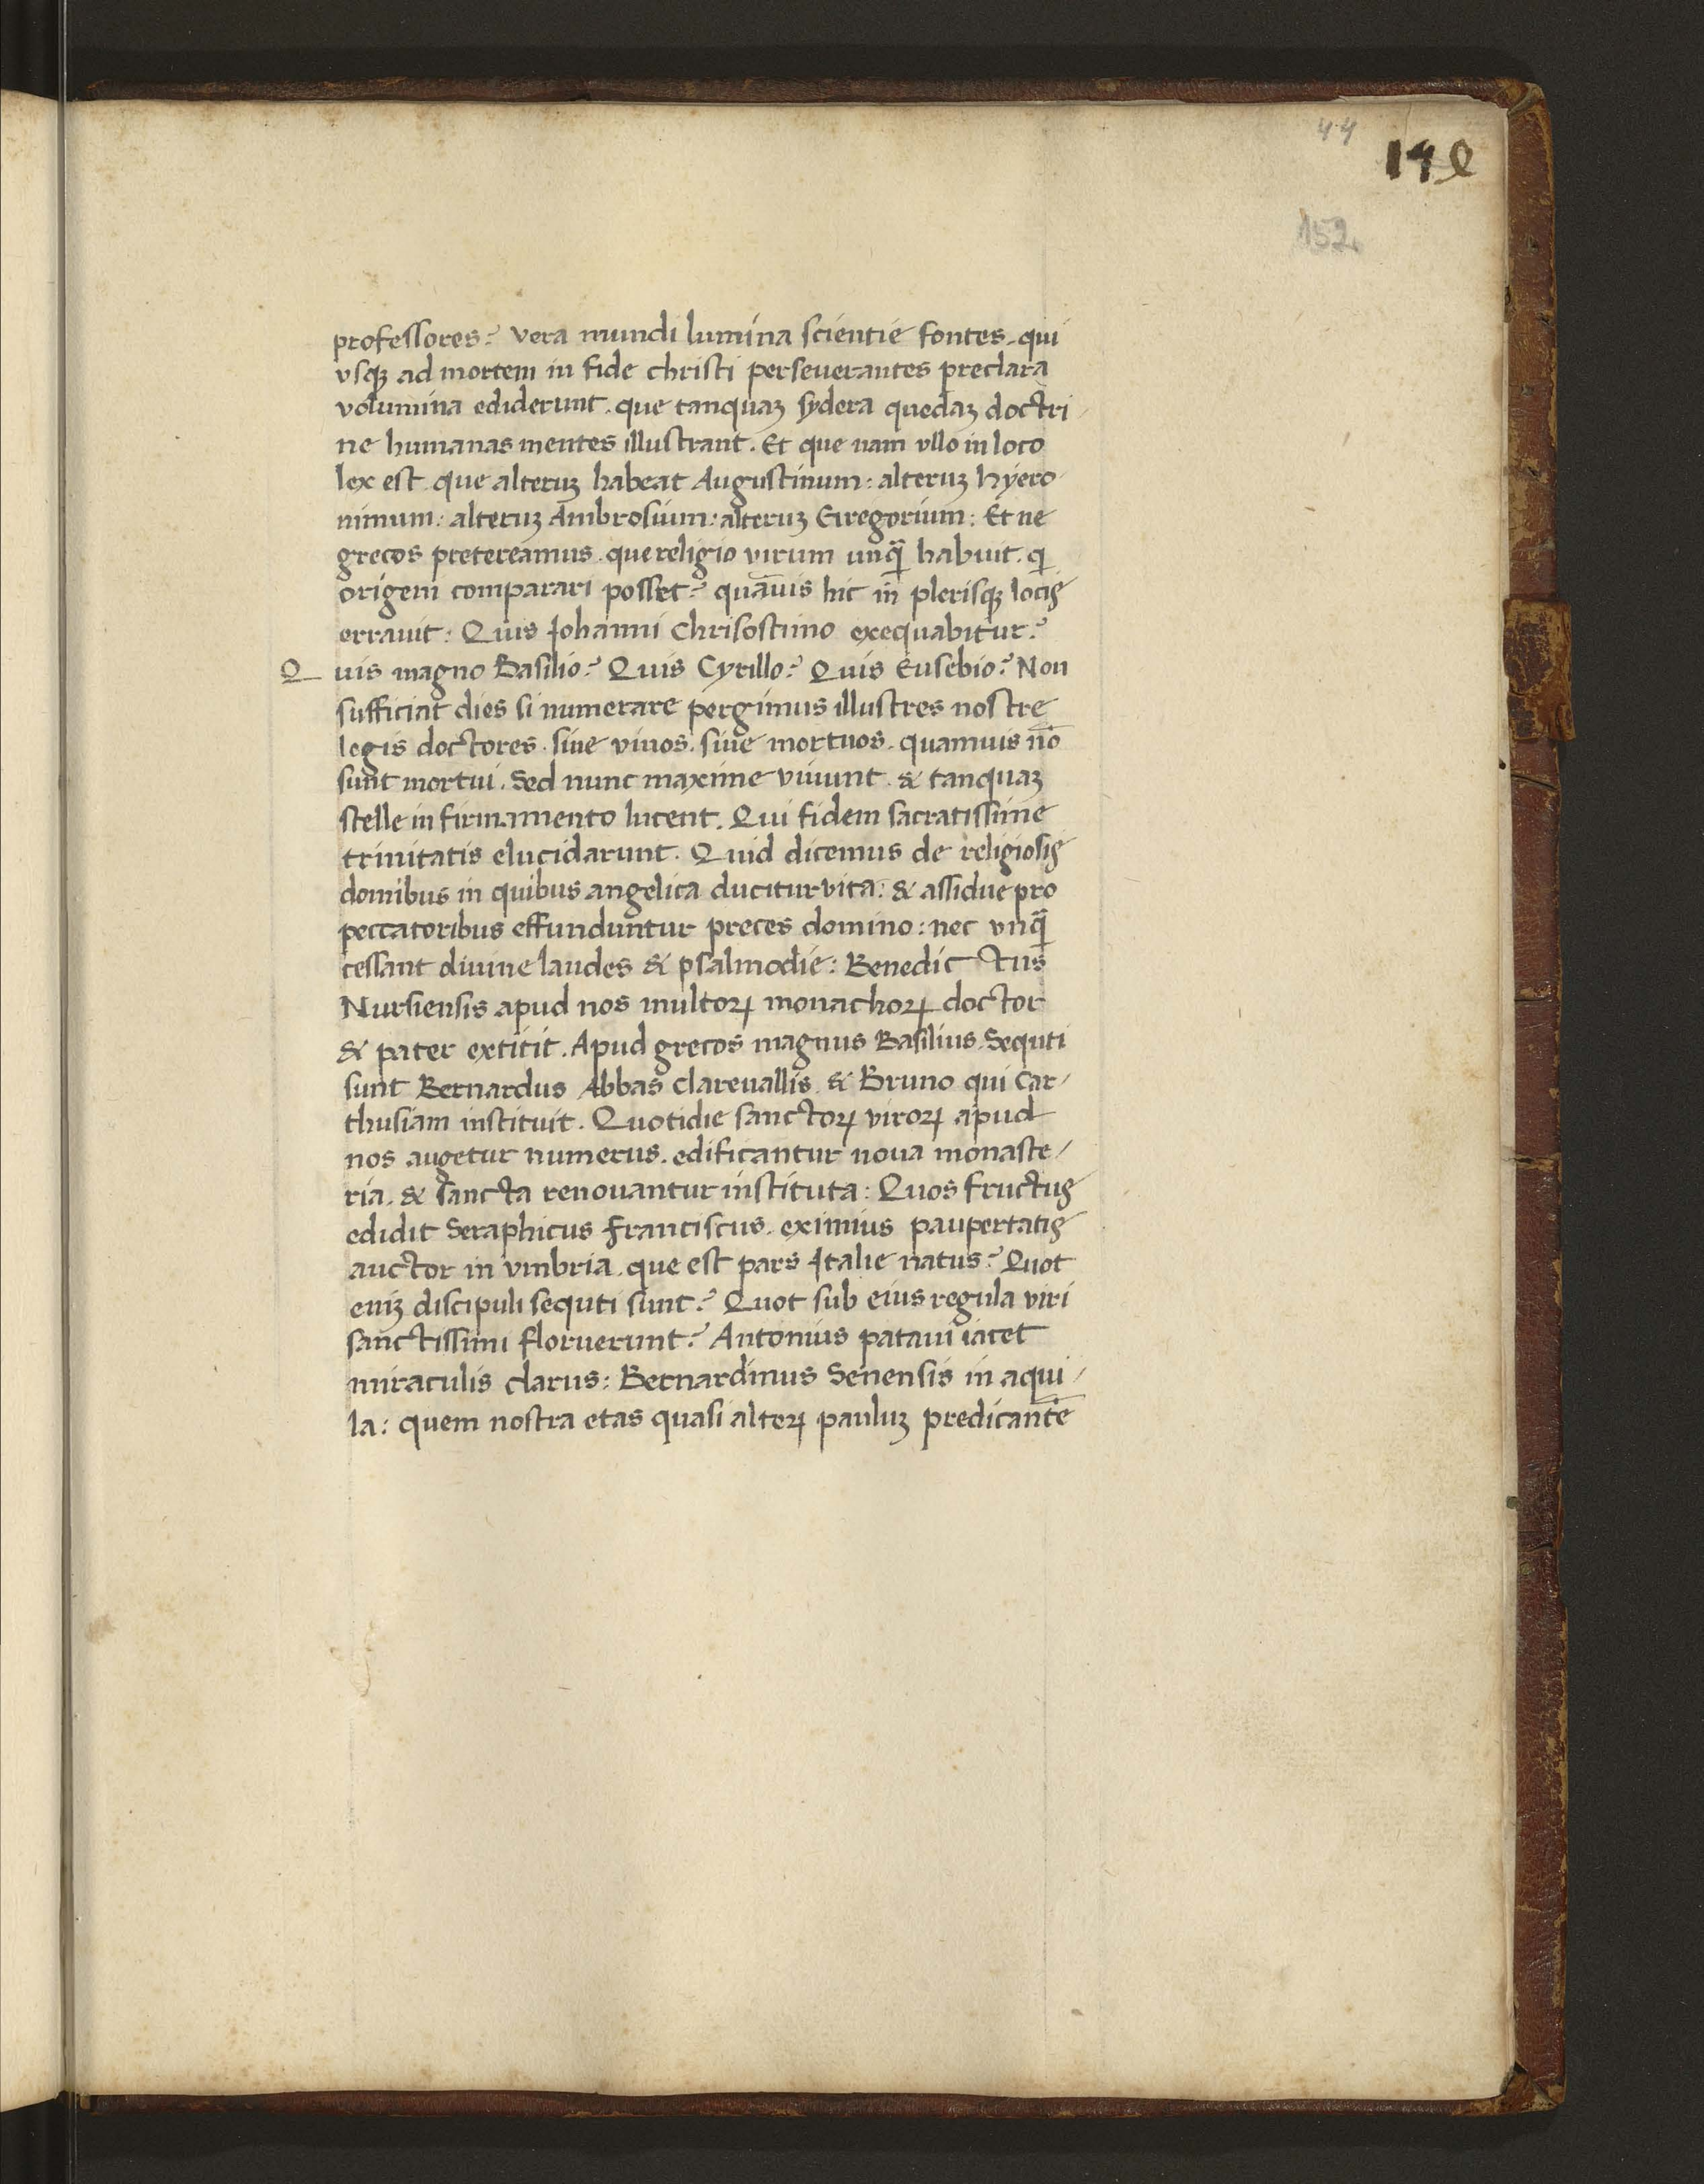 44
152
professores? vera mundi lumina scientie fontes. qui
vsqꝫ ad mortem in fide christi perseuerantes preclara
volumina ediderunt. que tanquaꝫ sydera quedaꝫ doctri/
ne humanas mentes illustrant. Et que nam vllo in loco
lex est que alteruꝫ habeat Augustinum: alteruꝫ hyero
nimum: alteruꝫ Ambrosium: alteruꝫ Gregorium: Et ne
grecos pretereamus. que religio virum unq̄ habuit. q
origeni comparari posset? quāuis hic in plerisqꝫ locis
errauit: Quis Johanni Chrisostimo exequabitur?
Quis magno Basilio? Quis Cyrillo? Quis Eusebio? Non
sufficiat dies si numerare pergimus illustres nostre
legis doctores. siue viuos. siue mortuos. quamuis nō
sunt mortui. Sed nunc maxime viuunt. & tanquaꝫ
stelle in firmamento lucent. Qui fidem sacratissime
trinitatis elucidarunt. Quid dicemus de religiosis
domibus in quibus angelica ducitur vita: & assidue pro
peccatoribus effunduntur preces domino: nec vnq̄
cessant diuine laudes & psalmodie: Benedictus
Nursiensis apud nos multoꝝ monachoꝝ doctor
& pater extitit. Apud grecos magnus Basilius. Sequti
sunt Bernardus Abbas clareuallis. & Bruno qui Car/
thusiam instituit. Quotidie sanctoꝝ viroꝝ apud
nos augetur numerus. edificantur noua monaste/
ria. & sancta renouantur instituta: Quos fructus
edidit Seraphicus franciscus. eximius paupertatis
auctor in vmbria. que est pars Italie natus? Quot
eiuꝫ discipuli sequti sunt? Quot sub eius regula viri
sanctissimi floruerunt? Antonius pataui iacet
miraculis clarus: Bernardinus Senensis in aqui/
la: quem nostra etas quasi alteꝝ pauluꝫ predicantē